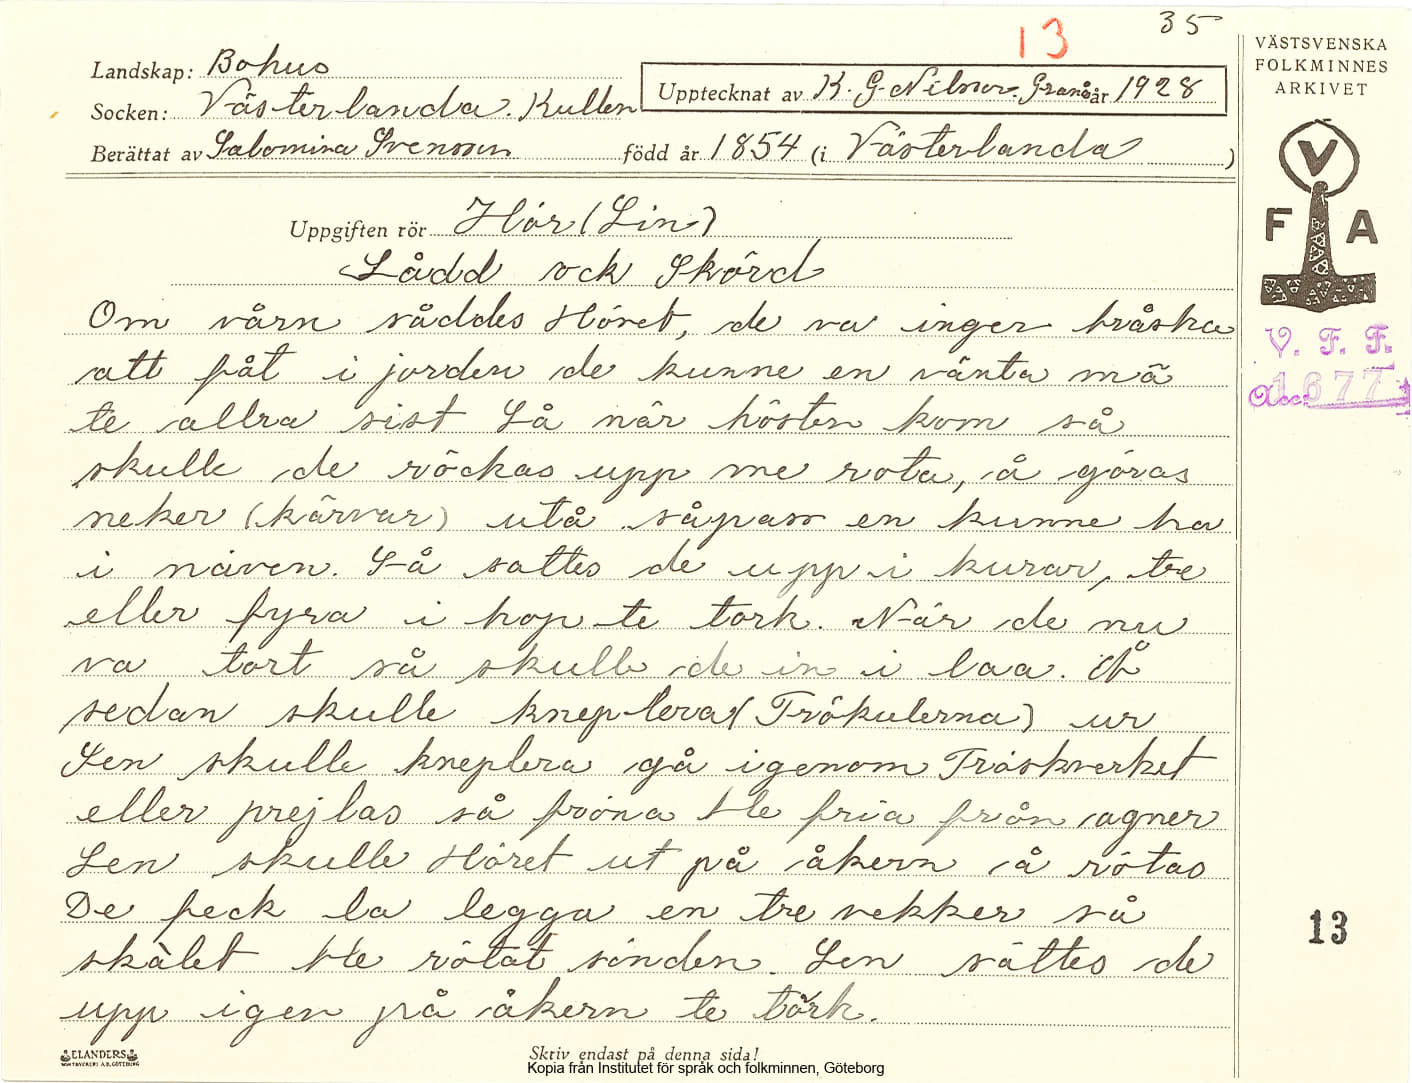 13
35
VÄSTSVENSKA
FOLKMINNES
ARKIVET
Landskap: Bohus
Upptecknat av K. G. Nilson. Granö år 1928
Socken: Västerlanda. Kullen
Berättat av Salomina Svensson född år 1854 (i Västerlanda)
V
F A
Uppgiften rör Hör (Lin)
Sådd ock Skörd
Om vårn såddes Höret, de va inger bråska
att fåt i jorden de kunne en vänta mä
te allra sist Så när hösten kom så
skulle de röckas upp me rota, å göras
neker (kärvar) utå såpass en kunne ha
i näven. Så sattes de upp i kurar, tre
eller fyra i hop te tork. När de nu
va tort så skulle de in i laa. Å
sedan skulle kneplera (Frökulerna) ur
Sen skulle kneplera gå igenom Tröskverket
eller prejlas så fröna ble fria från agner
Sen skulle Höret ut på åkern å rötas
De feck la legga en tre vekker så
skàlet ble rötat sönden. Sen sättes de
upp igen på åkern te törk.
V. F. F.
Acc. 1677
13
ELANDERS
Skriv endast på denna sida!
Kopia från Institutet för språk och folkminnen, Göteborg